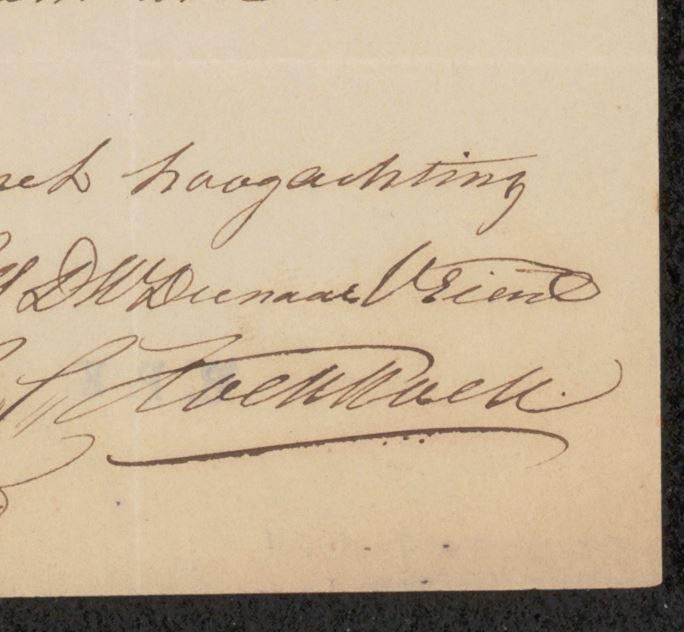 hoogachting
DW Dienaar Vriend
Koekkoek.